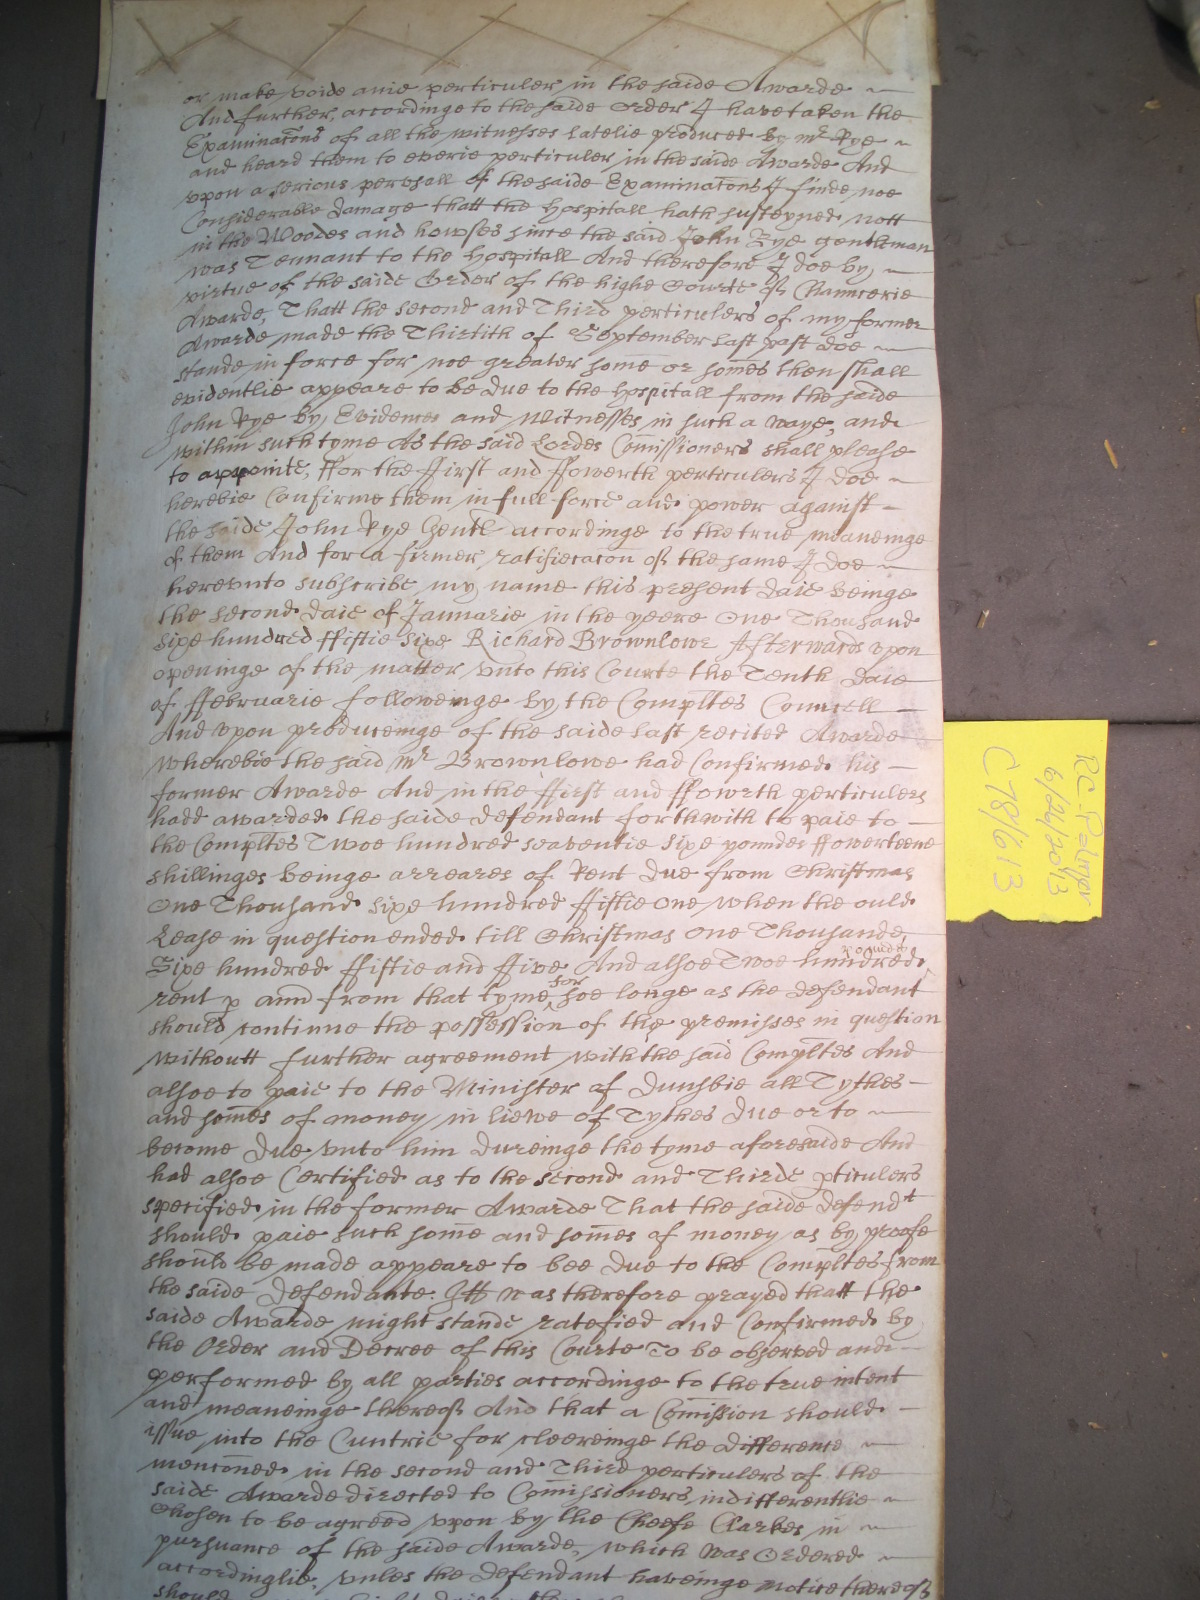 or make voide anie perticuler in the saide Awarde
And further, accordinge to the saide Order I have taken the
Examinacons of all the witnesses latelie produced by mr Rye
and heard them to everie perticuler in the saide Awarde And
vpon a serious pervsall of the saide Examinacons I finde noe
Considerable damage thatt the hospitall hath susteyned nott
in the Woodes and howses since the said John Rye gentleman
was Tennant to the hospitall And therefore I doe by
virtue of the saide Order of the highe Courte of Channcerie
Awarde, Thatt the second and Third perticulers of my former
Awarde made the Thirtith of September last past doe
stande in force for noe greater some or somes then shall
evidentlie appeare to be due to the hospitall from the saide
John Rye by Evidences and Witnesses in such a waye, and
within such tyme As the said Lordes Comissioners shall please
to appointe, ffor the ffirst and ffowerth perticulers I doe
herebie Confirme them in full force and power against
the saide John Rye Gentl accordinge to the true meaneinge
of them And for a firmer ratificacon of the same I doe
herevnto subscribe my name this present daie beinge
the second daie of Jannarie in the yeere One Thousand
Sixe hundred ffiftie Sixe Richard Brownlowe Afterwards vpon
openinge of the matter vnto this Courte the Tenth daie
of ffebruarie followeinge by the Compltes Councell
And vpon produceinge of the saide last recited Awarde
wherebie the said mr Brownlowe had Confirmed his
former Awarde And in the ffirst and ffowrth perticulers
hadd awarded the saide defendant forthwith to paie to
the Compltes Twoe hundred seaventie sixe poundes ffowerteene
shillinges beinge arreares of Rent due from Christmas
One Thousand sixe hundred ffiftie one when the ould
Lease in question ended till Christmas One Thousande
Sixe hundred ffiftie and ffive And alsoe Twoe hundred poundes
rent p ann from that tyme for soe longe as the defendant
should continue the possession of the premisses in question
withoutt further agreement with the said Compltes And
alsoe to paie to the Minister of Dunsbie all Tythes
and somes of money in liewe of Tythes due or to
become due vnto him dureinge the tyme aforesaide And
had alsoe Certified as to the second and Thirde pticulers
specified in the former Awarde That the saide defendt
should paie such some and somes of money as by proofe
should be made appeare to bee due to the Compltes from
the saide defendante. Itt was therefore prayed thatt the
saide Awarde might stande ratefied and Confirmed by
the Order and Decree of this Courte To be observed and
performed by all parties accordinge to the true intent
and meaneinge thereof And that a Comission should
issue into the Cuntrie for cleereinge the difference
menconed in the second and Third perticulers of the
saide Awarde directed to Comissioners indifferentlie
Chosen to be agreed vpon by the Cheefe Clarkes in
pursuance of the saide Awarde, which was Ordered
accordinglie, vnles the defendant haveinge notice thereof
should
RC Palmer
6/24/2013
C78/613